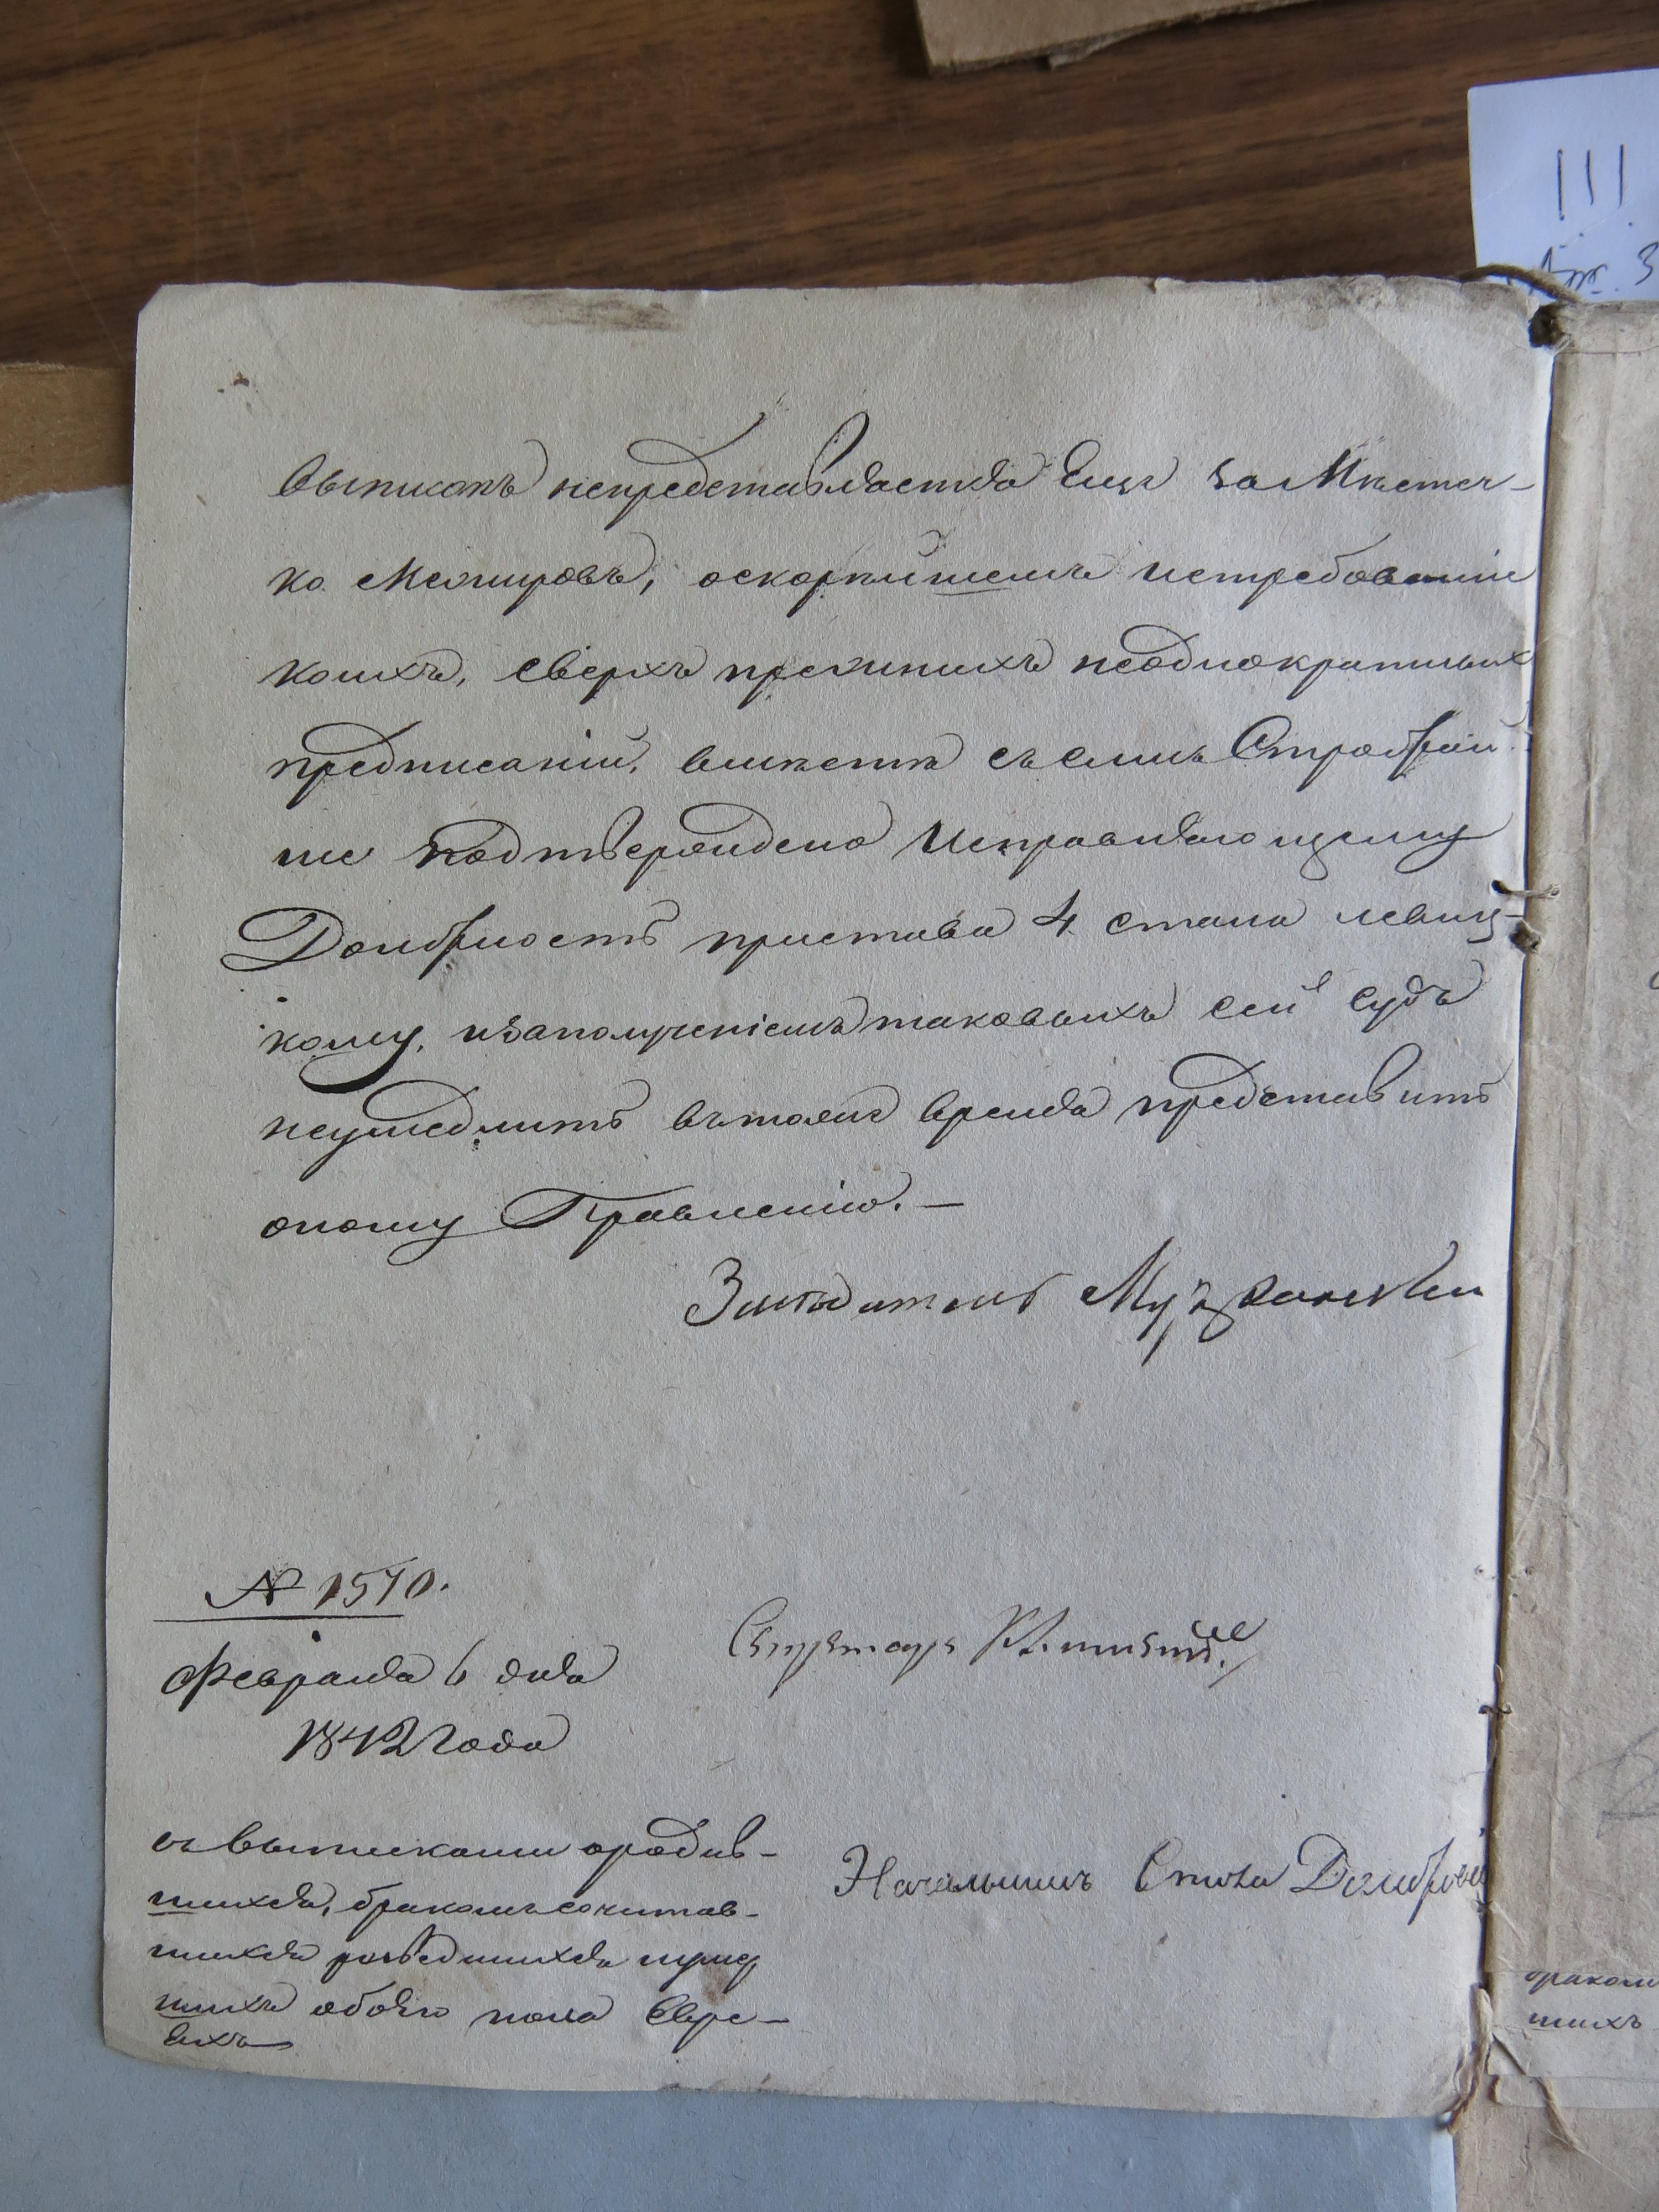 III
3
Выписокъ непредставляется Еще за Мѣстеч-
ко Межировъ, оскорѣйшемъ истребованіи
коихъ, сверхъ прежнихъ неоднократныхъ
предписаній, вмѣстѣ съ симъ Строжай
ше подтверждено Исправляющему
Должность пристава 4 стана Левиц-
кому, изаполученіемъ таковыхъ сей Судъ
неумедлитъ втоже время представить
оному Правленію. —
Засѣдатель
№ 1570.
Февраля 6 дня
1842 года
Секретарь
съ выписками ородив-
шихся, бракомъ сочитав-
шихся розведшихся иумер
шихъ обоего пола Евре-
яхъ
Начальникъ Стола
браком
шихъ